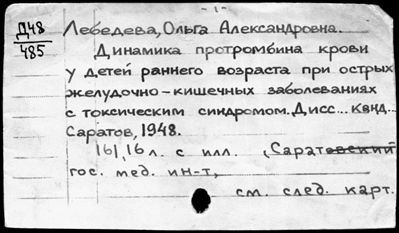 - 1 -
Д48 Лебедева, Ольга Александровна.
485 Динамика протромбина крови
у детей раннего возраста при острых
желудочно-кишечных заболеваниях
с токсическим синдромом. Дисс... канд...
Саратов, 1948.
161, 16 л. с илл. (Саратовский
гос. мед. ин-т,
см. след. карт.